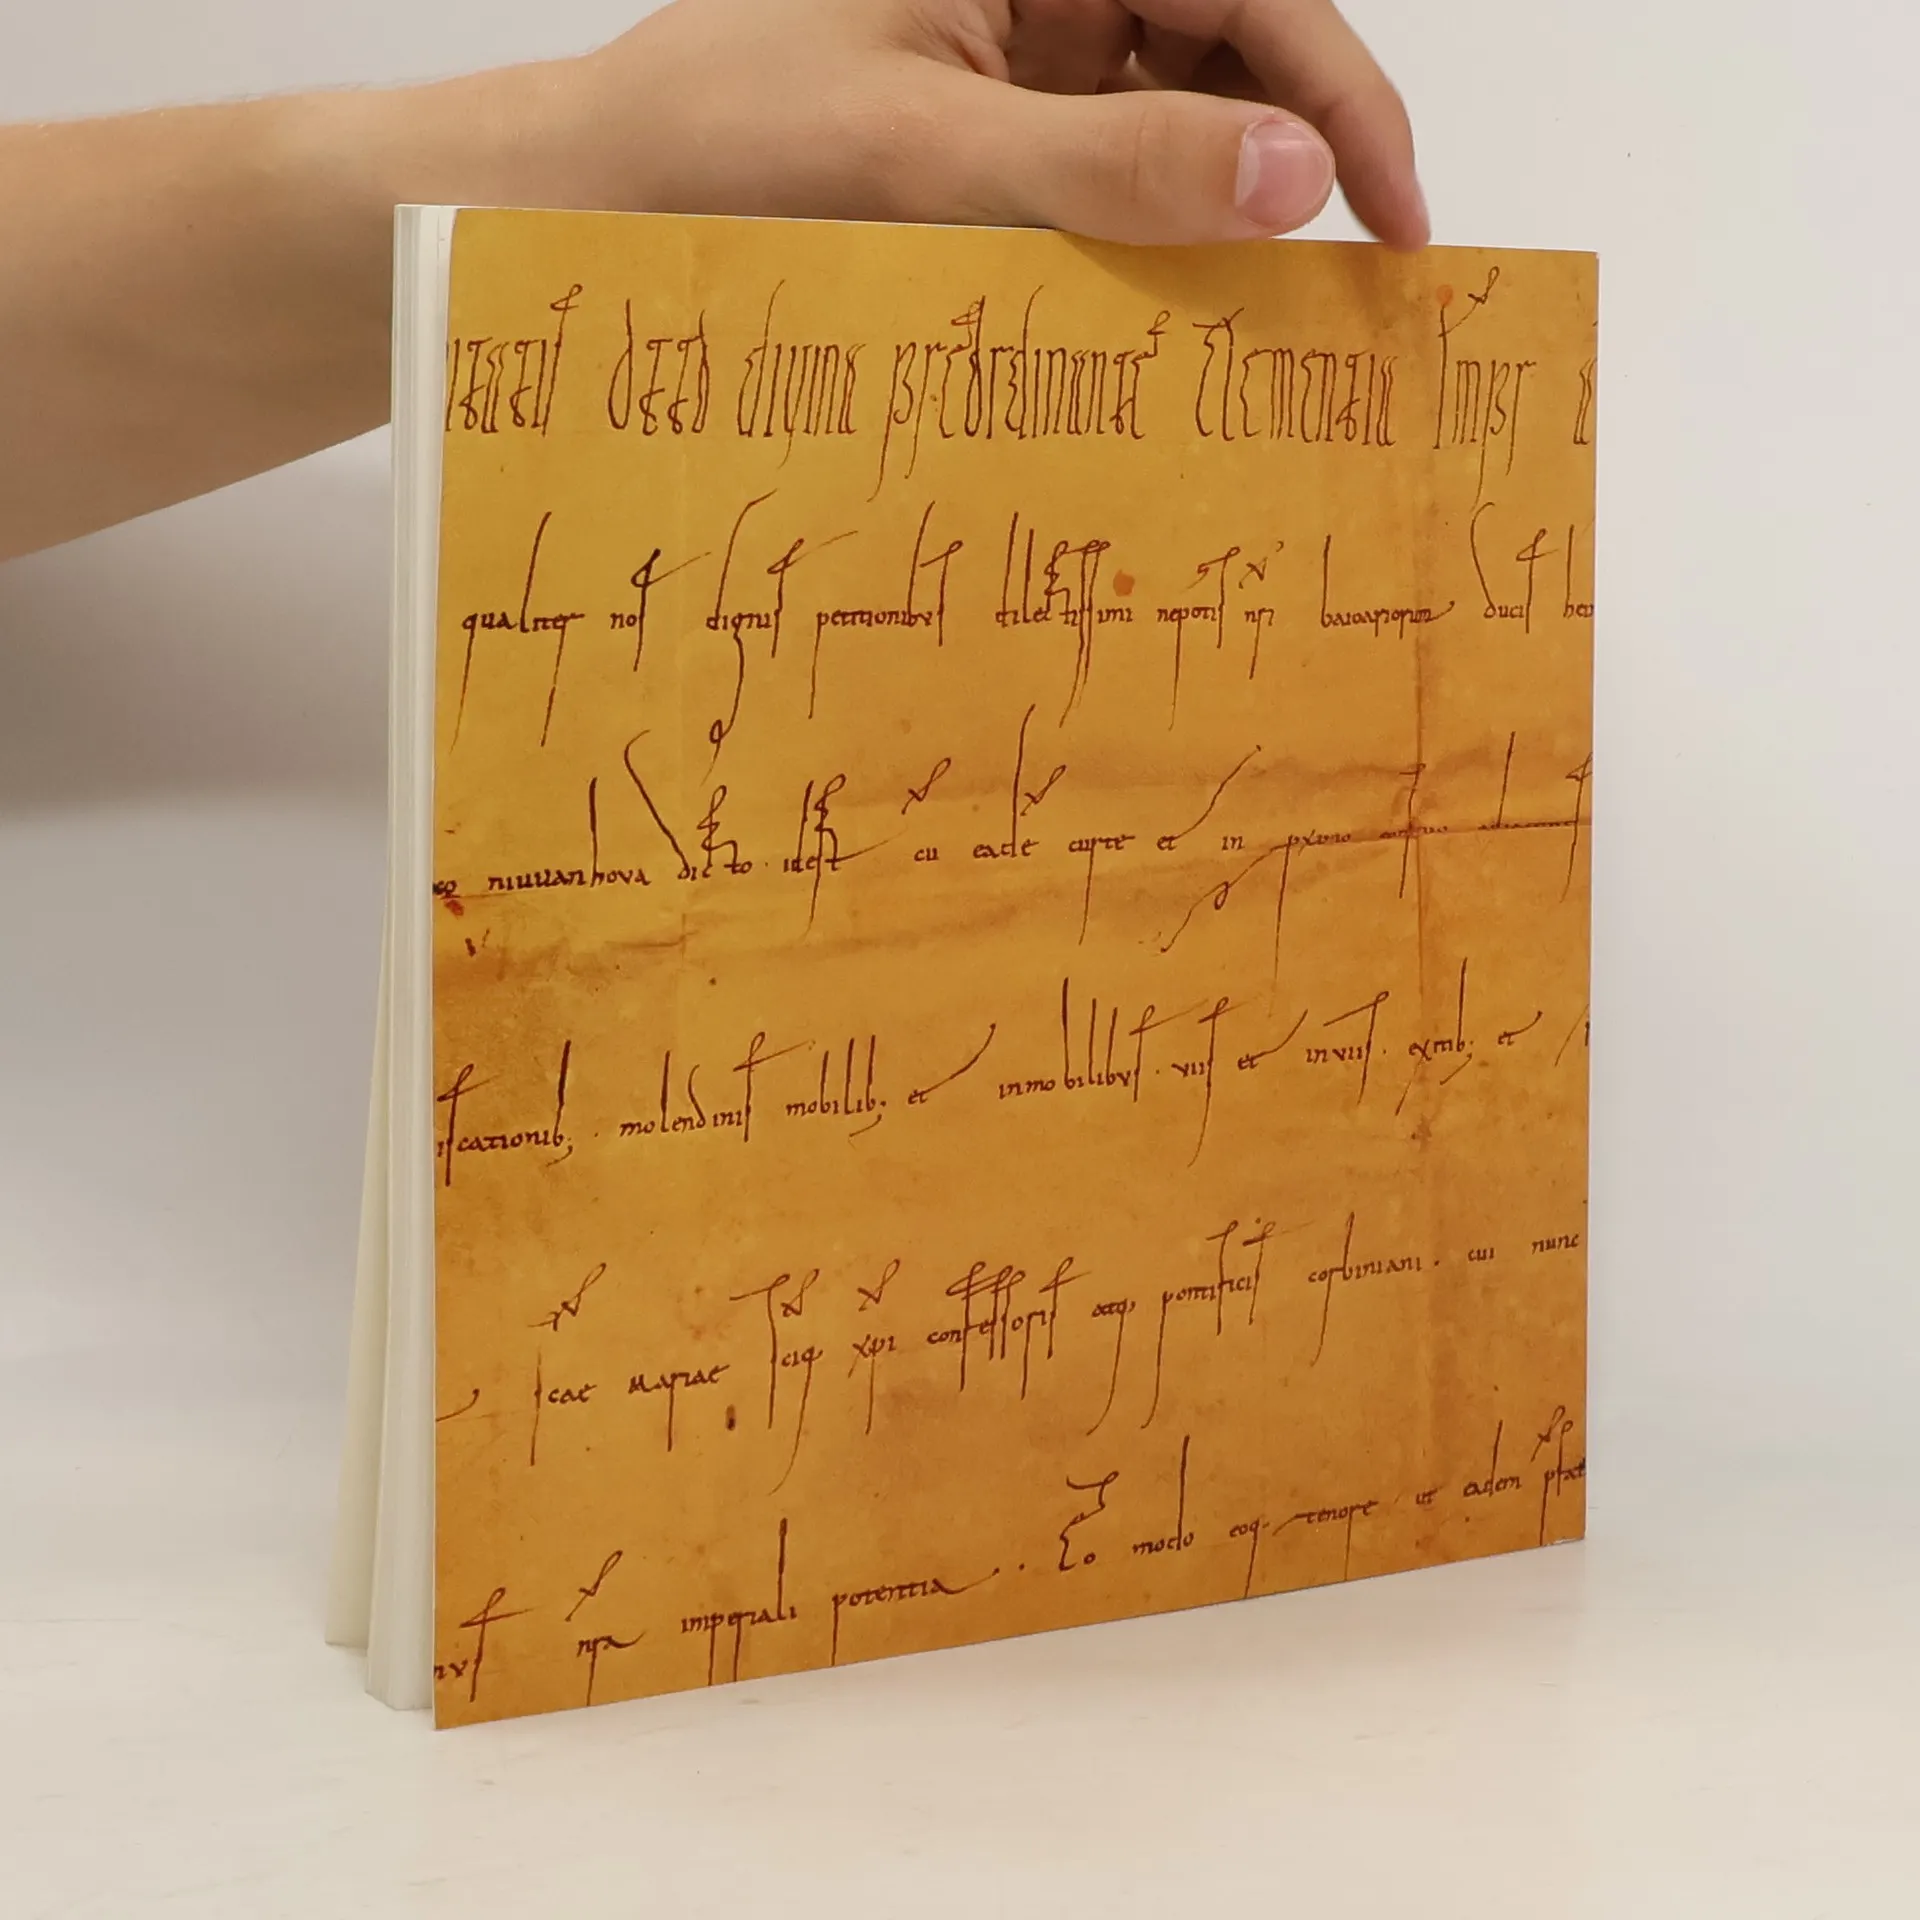 otto divina preordinante clementia Impr
qualiter nos dignis petitionibus dilectissimi nepotis nri baioariorum ducis hei
niuuanhova dicto · idest cu eade curte et in pximo
iscationib; · molendinis mobilib; et inmobilibus · viis et inviis · exitib; et
scae mariae sciq xpi confessoris atq pontificis corbiniani · cui nunc
nra imperiali potentia · · Eo modo eoq tenore ut eadem